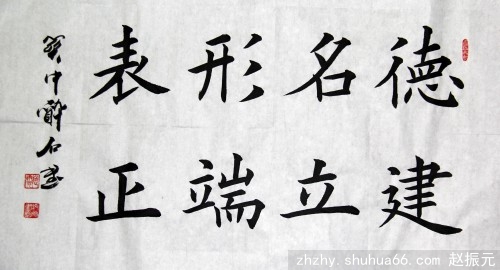 德建
名立
形端
表正
癸中醉石书
zhzhy.shuhua66.com 赵振元